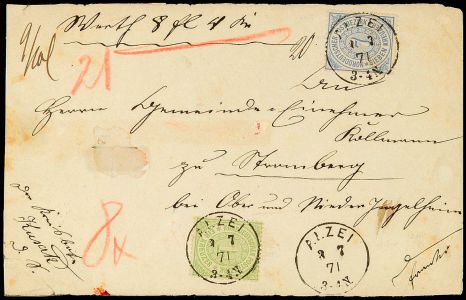 Werth 8 fl 4
20.
21
ALZEI
7
71
3-4N
An
Herrn Gemeinde-Einnehmer
Kollmann
zu Stromberg
bei Ober und Nieder Ingelheim
franko
8x
ALZEI
3 7
71
3-4N
ALZEI
3 7
71
3-4N